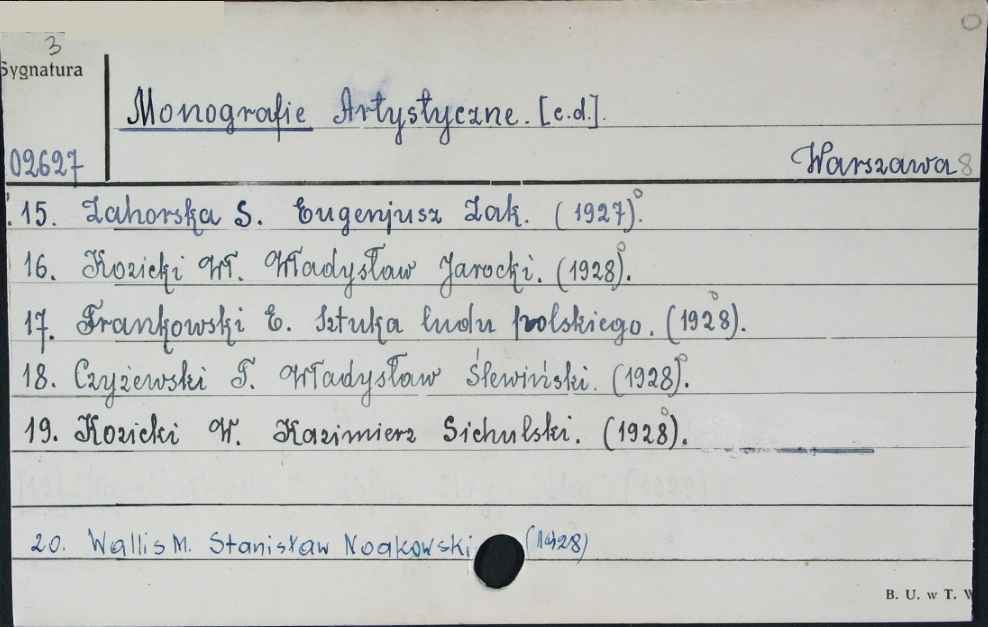 3
Sygnatura
Monografie Artystyczne. [c.d.].
02627
Warszawa 8
15. Zahorska S. Eugenjusz Zak. (1927).
16. Kozicki Wł. Władysław Jarocki. (1928).
17. Frankowski E. Sztuka ludu polskiego. (1928).
18. Czyżewski T. Władysław Ślewiński. (1928).
19. Kozicki W. Kazimierz Sichulski. (1928).
20. Wallis M. Stanisław Noakowski (1928)
B. U. w T. W